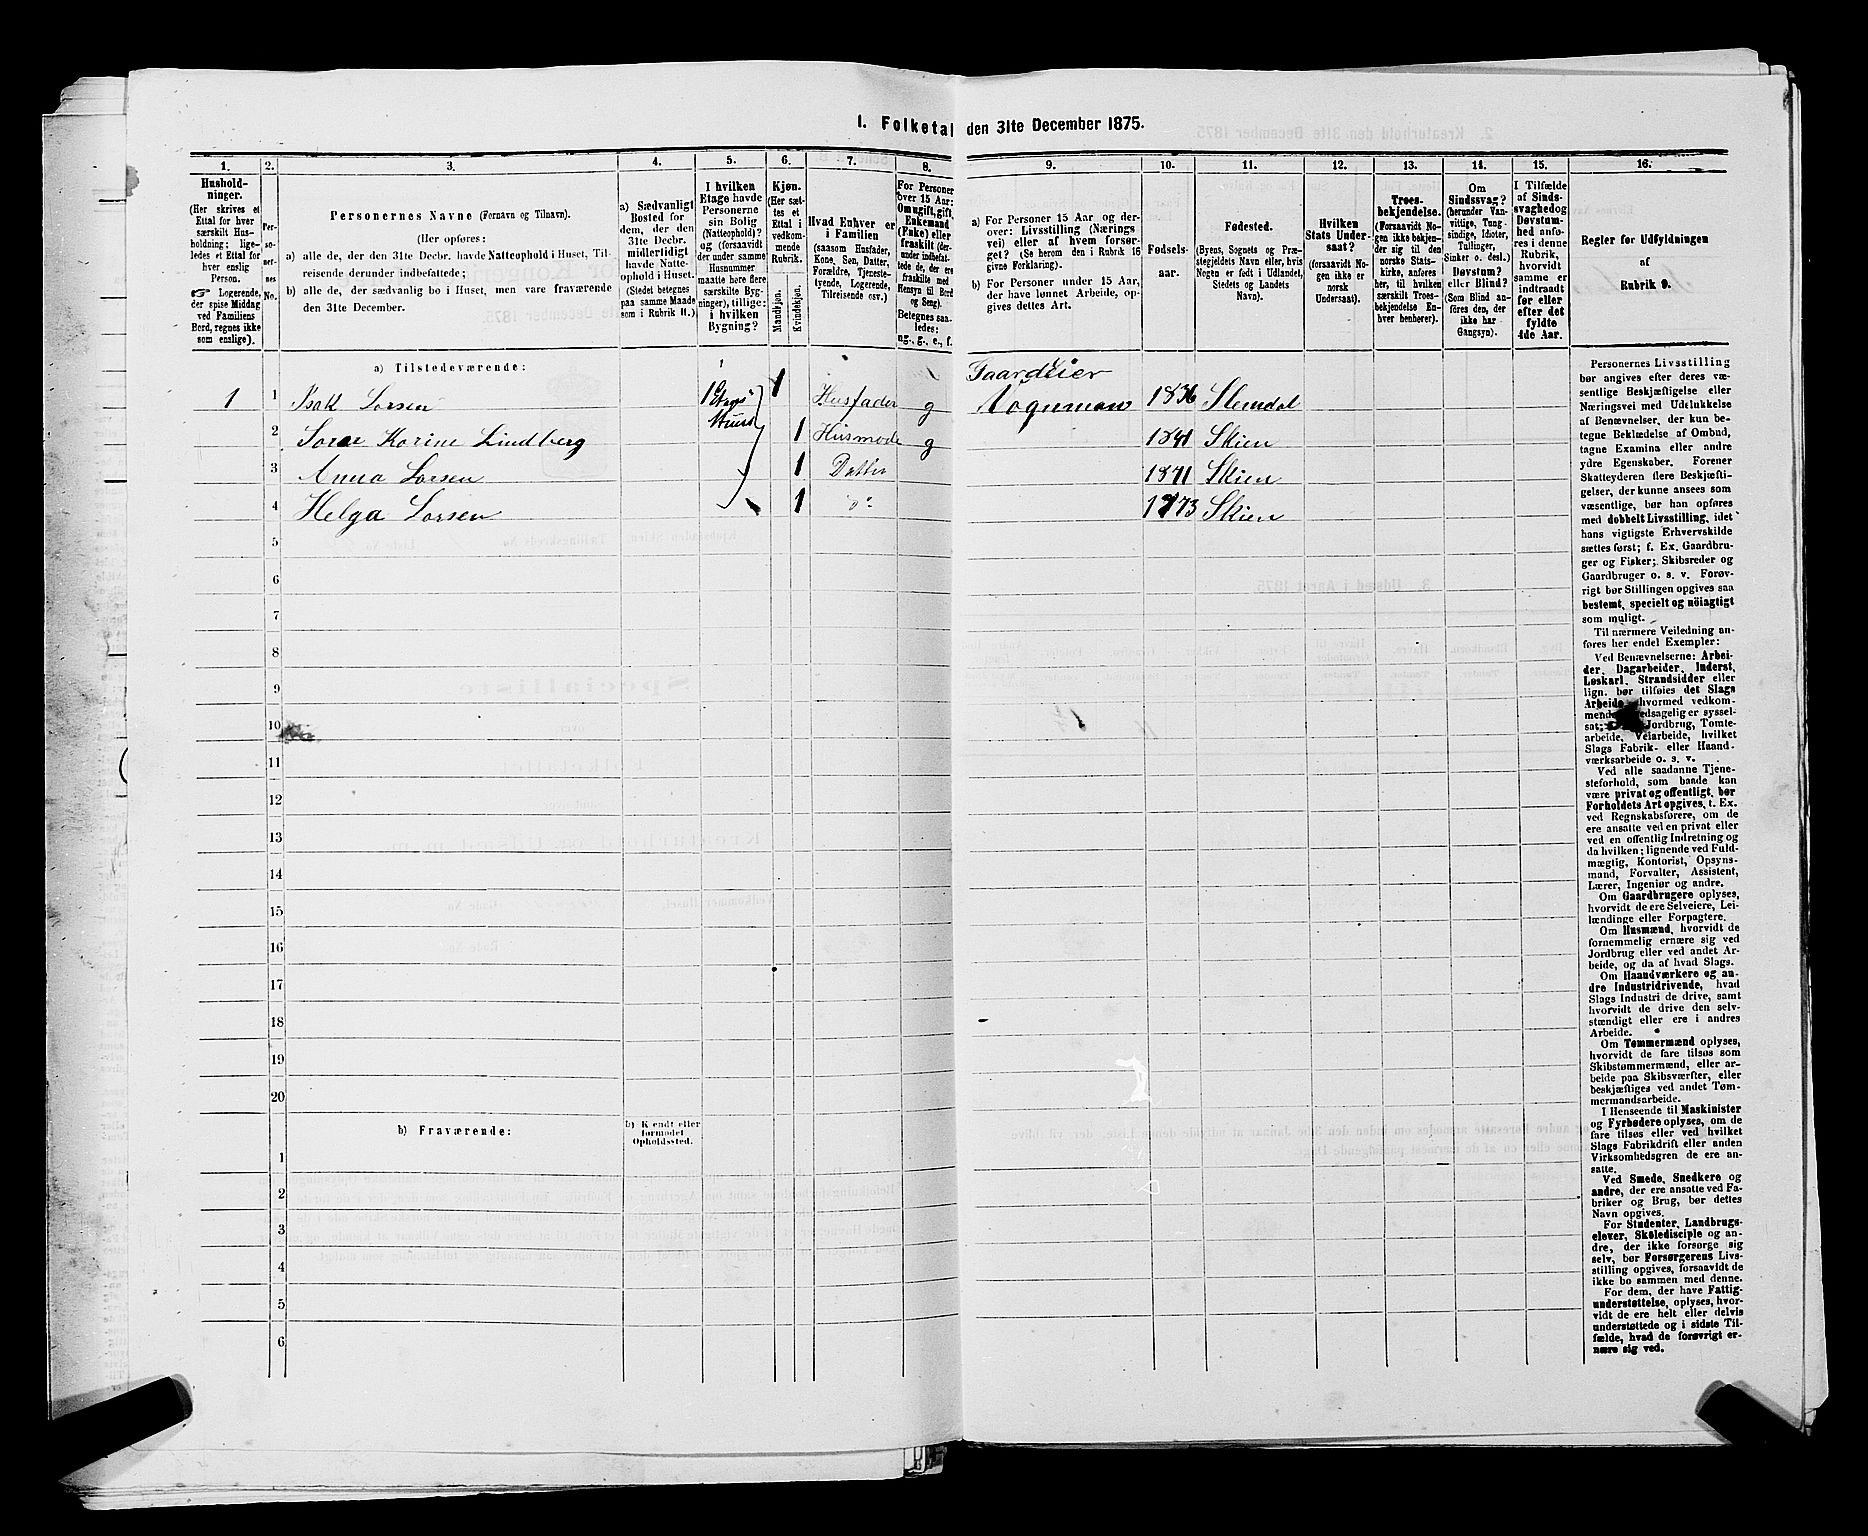 1. Folketal den 31te December 1875.
1. 2. 3. 4. 5. 6. 7. 8. 9. 10. 11. 12. 13. 14. 15. 16.
Hushold-
ninger.
(Her skrives et
Ettal for hver
særskilt Hus-
holdning; lige-
ledes et Ettal for
hver enslig
Person.
☞ Logerende,
der spise Middag
ved Familiens
Bord, regnes ikke
som enslige).
Per-
so-
ner-
nes
No.
Personernes Navne (Fornavn og Tilnavn).
(Her opføres:
a) alle de, der den 31te Decbr. havde Natteophold i Huset, Til-
reisende derunder indbefattede;
b) alle de, der sædvanlig bo i Huset, men vare fraværende
den 31te December.
a) Sædvanligt
Bosted for
dem, der den
31te Decbr.
midlertidigt
havde Natte-
ophold i Huset.
(Stedet betegnes
paa samme Maade
som i Rubrik 11.)
I hvilken
Etage havde
Personerne
sin Bolig
(Natteophold)?
og (forsaavidt
der under samme
Husnummer
maatte høre flere
særskilte Byg-
ninger), tillige:
i hvilken
Bygning?
Kjøn.
(Her sæt-
tes et
Ettal i
vedkom-
mende
Rubrik.
Mandkjøn.
Kvindekjøn.
Hvad Enhver er
i Familien
(saasom Husfader,
Kone, Søn, Datter,
Forældre, Tjeneste-
tyende, Logerende,
Tilreisende osv.)
For Personer
over 15 Aar:
Om ugift, gift,
Enkemand
(Enke) eller
fraskilt (der-
under indbefat-
tede de, der ere
fraskilte med
Hensyn til Bord
og Seng).
Betegnes saa-
ledes:
ug., g., e., f.
a) For Personer 15 Aar og der-
over: Livsstilling (Nærings-
vei) eller af hvem forsør-
get? (Se herom den i Rubrik 16
givne Forklaring).
b) For Personer under 15 Aar,
der have lønnet Arbeide, op-
gives dettes Art.
Fødsels-
aar.
Fødested.
(Byens, Sognets og Præ-
stegjeldets Navn eller, hvis
Nogen er født i Udlandet,
Stedets og Landets
Navn).
Hvilken
Stats Under-
saat?
(forsaavidt No-
gen ikke er
norsk
Undersaat).
Troes-
bekjendelse.
(Forsaavidt No-
gen ikke bekjen-
der sig til den
norske Stats-
kirke, anføres
her, til hvilken
særskilt Troes-
bekjendelse En-
hver henhører).
Om
Sindssvag?
(herunder Van-
vittige, Tung-
sindige, Idioter,
Tullinger,
Sinker o. desl.)
Døvstum?
eller Blind?
(Som Blind an-
føres den, der
ikke har
Gangsyn).
I Tilfælde
af Sinds-
svaghed og
Døvstum-
hed anfø-
res i denne
Rubrik,
hvorvidt
samme er
indtraadt
før eller
efter det
fyldte
4de Aar.
Regler for Udfyldningen
af
Rubrik 9.
a) Tilstedeværende:
Gaardeier
1 1 Isak Larsen 1 Etage 1 Husfader g 1836 Slemdal
2 Karine Lindberg 1 Husmode g 1841 Skien
3 Anna Larsen 1 Datter 1871 Skien
4 Helga Larsen 1 1873 Skien
5
6
7
8
9
10
11
12
13
14
15
16
17
18
19
20
b) Fraværende:
b) Kjendt eller
formodet
Opholdssted.
1
2
3
4
5
6
Personernes Livsstilling
bør angives efter deres væ-
sentlige Beskjæftigelse eller
Næringsvei med Udelukkelse
af Benævnelser, der kun be-
tegne Beklædelse af Ombud,
tagne Examina eller andre
ydre Egenskaber. Forener
Skatteyderen flere Beskjæfti-
gelser, der kunne ansees som
væsentlige, bør han opføres
med dobbelt Livsstilling, idet
hans vigtigste Erhvervskilde
sættes først; f. Ex. Gaardbru-
ger og Fisker; Skibsreder og
Gaardbruger o. s. v. Forøv-
rigt bør Stillingen opgives saa
bestemt, specielt og nöiagtigt
som muligt.
Til nærmere Veiledning an-
føres her endel Exempler:
Ved Benævnelserne: Arbei-
der, Dagarbeider, Inderst,
Løskarl, Strandsidder eller
lign. bør tilføies det Slags
Arbeide, hvormed vedkom-
mende hovedsagelig er syssel-
sat; Jordbrug, Tomte-
arbeide, Veiarbeide, hvilket
Slags Fabrik- eller Haand-
værksarbeide o. s. v.
Ved alle saadanne Tjene-
steforhold, som baade kan
være privat og offentligt, bør
Forholdets Art opgives, t. Ex.
ved Regnskabsførere, om de
ere ansatte ved en privat eller
ved en offentlig Indretning og
da hvilken; lignende ved Fuld-
mægtig, Kontorist, Opsyns-
mand, Forvalter, Assistent,
Lærer, Ingeniør og andre.
Om Gaardbrugere oplyses,
hvorvidt de ere Selveiere, Lei-
lændinge eller Forpagtere.
Om Husmænd, hvorvidt de
fornemmelig ernære sig ved
Jordbrug eller ved andet Ar-
beide, og da af hvad Slags.
Om Haandværkere og an-
dre Industridrivende, hvad
Slags Industri de drive, samt
hvorvidt de drive den selv-
stændigt eller ere i andres
Arbeide.
Om Tømmermænd oplyses,
hvorvidt de fare tilsøs som
Skibstømmermænd, eller ar-
beide paa Skibsværfter, eller
beskjæftiges ved andet Tøm-
mermandsarbeide.
I Henseende til Maskinister
og Fyrbødere oplyses, om de
fare tilsøs eller ved hvilket
Slags Fabrikdrift eller anden
Virksomhedsgren de ere an-
satte.
Ved Smede, Snedkere og
andre, der ere ansatte ved Fa-
briker og Brug, bør dettes
Navn opgives.
For Studenter, Landbrugs-
elever, Skoledisciple og an-
dre, der ikke forsørge sig
selv, bør Forsørgerens Livs-
stilling opgives, forsaavidt de
ikke bo sammen med denne.
For dem, der have Fattig-
understøttelse, oplyses, hvor-
vidt de ere helt eller delvis
understøttede og i sidste Til-
fælde, hvad de forøvrigt er-
nære sig ved.